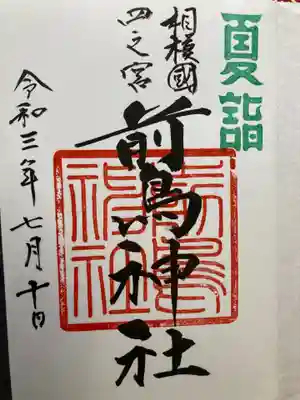 夏詣
相模國
四之宮
前鳥神社
令和三年七月十日